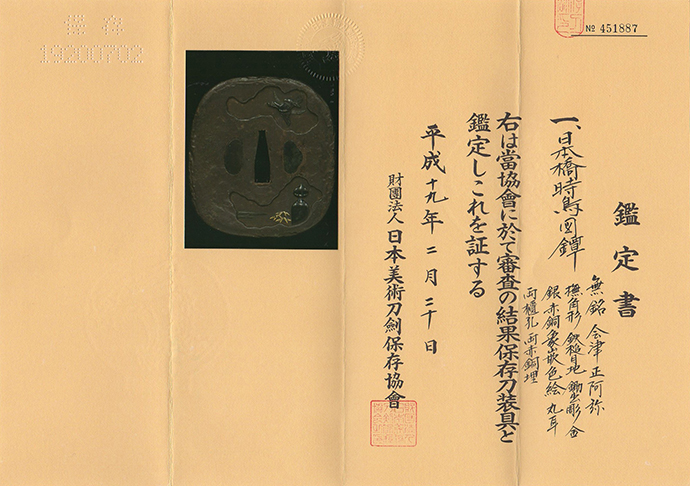 No 451887
鑑定書
一、日本橋時鳥図鐔
無銘 会津正阿弥
撫角形 鉄槌目地 鋤出彫 金
銀赤銅象嵌色絵 丸耳
両櫃孔 両赤銅埋
右は當協會に於て審査の結果保存刀装具と
鑑定しこれを証する
平成十九年二月二十日
財團法人 日本美術刀劍保存協會
保存
19200702